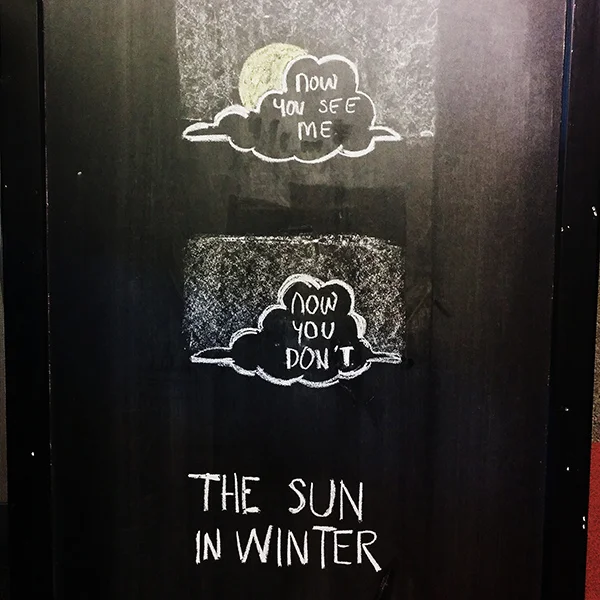 NOW
YOU SEE
ME
NOW
YOU
DON'T
THE SUN
IN WINTER